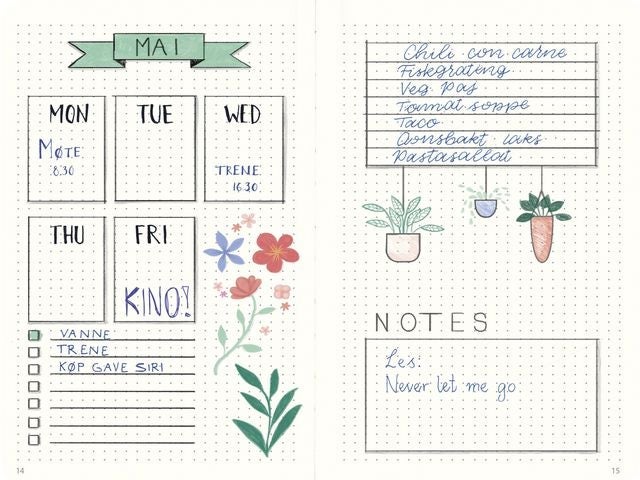 MAI
MON
TUE
WED
MØTE
8.30
TRENE
16.30
THU
FRI
KINO!
VANNE
TRENE
KØP GAVE SIRI
14
Chili con carne
Fiskegrateng
Veg. Pas
Tomat soppe
Taco
Ovnsbakt laks
Pastasallad
NOTES
Les:
Never let me go
15